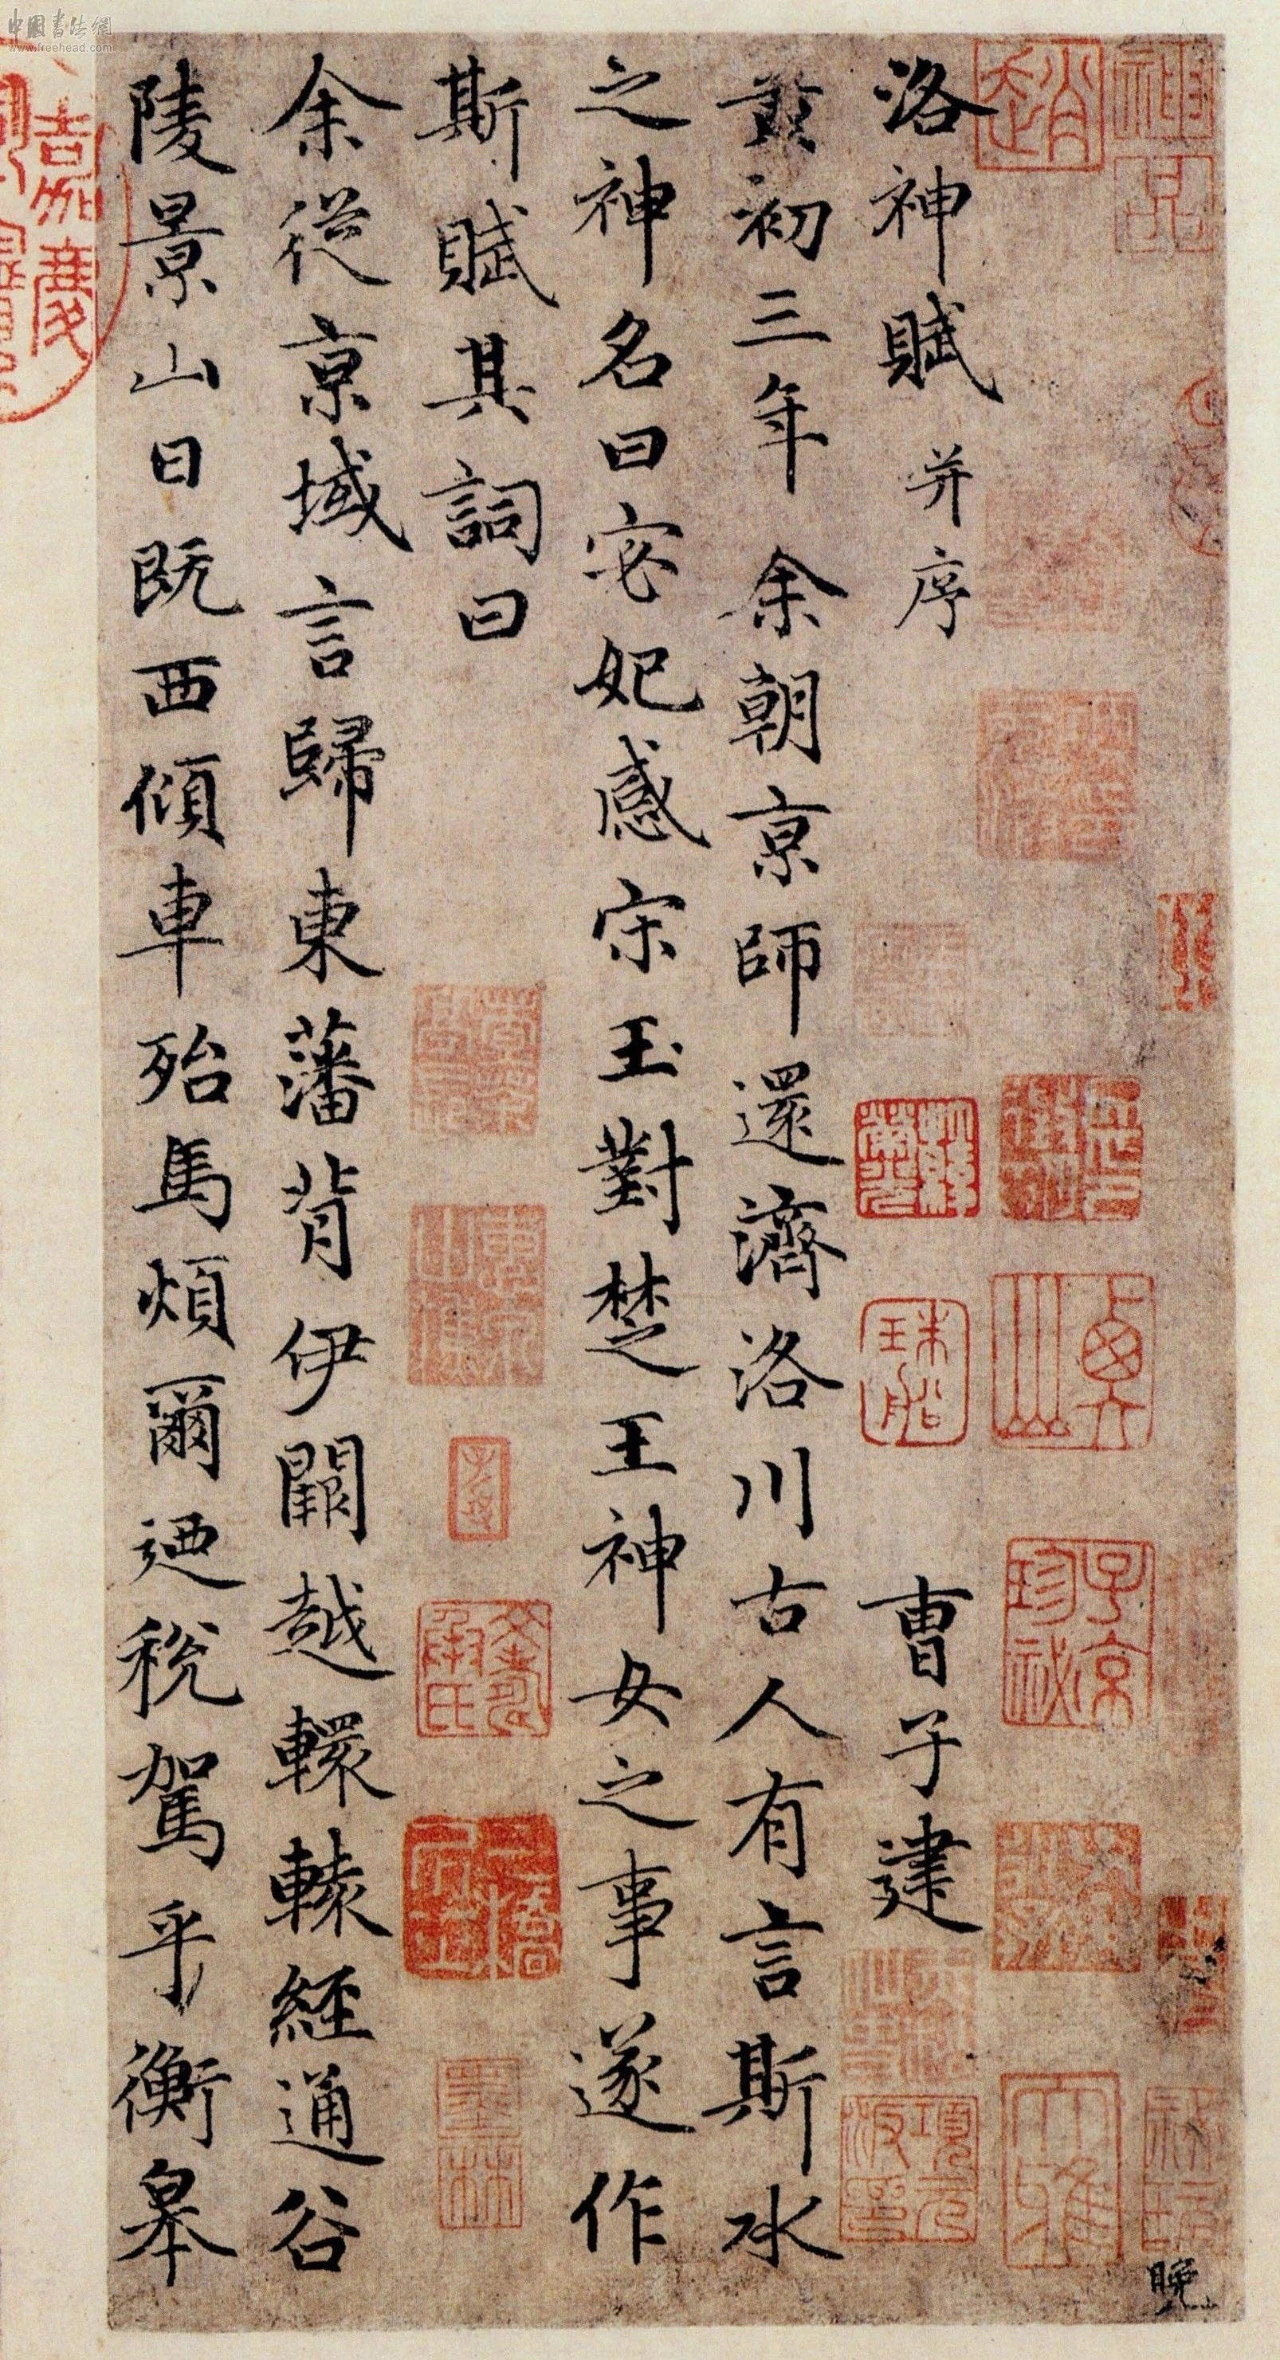 洛神賦 并序 曹子建
黃初三年余朝京師還濟洛川古人有言斯水
之神名曰宓妃感宋玉對楚王神女之事遂作
斯賦其詞曰
余從京域言歸東藩背伊闕越轘轅經通谷
陵景山日既西傾車殆馬煩爾迺稅駕乎蘅皋
晚
中國書法網
www.freehead.com
趙
嘉慶
珠船
子京珍祕
項元汴印
墨林
大雅
神品